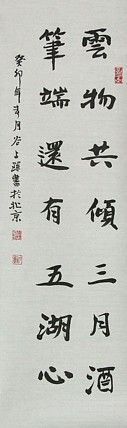 雲物共傾三月酒
筆端還有五湖心
癸卯年春月谷上躍書於北京